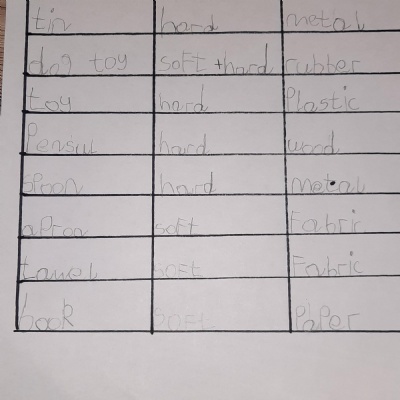 tin hard metal
dog toy soft + hard rubber
toy hard Plastic
Pensul hard wood
spoon hard metal
aProa soft Fabric
tawel soft Fabric
book soft PaPer